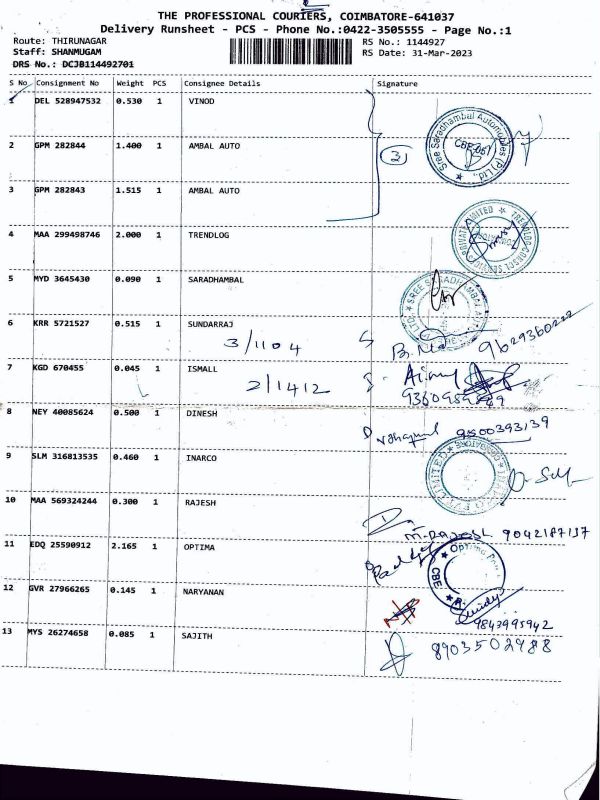 THE PROFESSIONAL COURIERS, COIMBATORE-641037
Delivery Runsheet - PCS - Phone No.:0422-3505555 - Page No.:1
Route: THIRUNAGAR RS No.: 1144927
Staff: SHANMUGAM RS Date: 31-Mar-2023
DRS No.: DCJB114492701
S No Consignment No Weight PCS Consignee Details Signature
1 DEL 528947532 0.530 1 VINOD
2 GPM 282844 1.400 1 AMBAL AUTO
3
Sree Saradhambal Automobiles (P) Ltd.
3 GPM 282843 1.515 1 AMBAL AUTO
4 MAA 299498746 2.000 1 TRENDLOG
5 MYD 3645430 0.090 1 SARADHAMBAL
6 KRR 5721527 0.515 1 SUNDARRAJ
3/1104 9629360222
7 KGD 670455 0.045 1 ISMALL
2/1412
8 NEY 40085624 0.500 1 DINESH
9500393139
9 SLM 316813535 0.460 1 INARCO
10 MAA 569324244 0.300 1 RAJESH
M. Rajesh 9042187137
11 EDQ 25590912 2.165 1 OPTIMA
Optima
CBE
12 GVR 27966265 0.145 1 NARYANAN
9843995942
13 MYS 26274658 0.085 1 SAJITH
8903502988